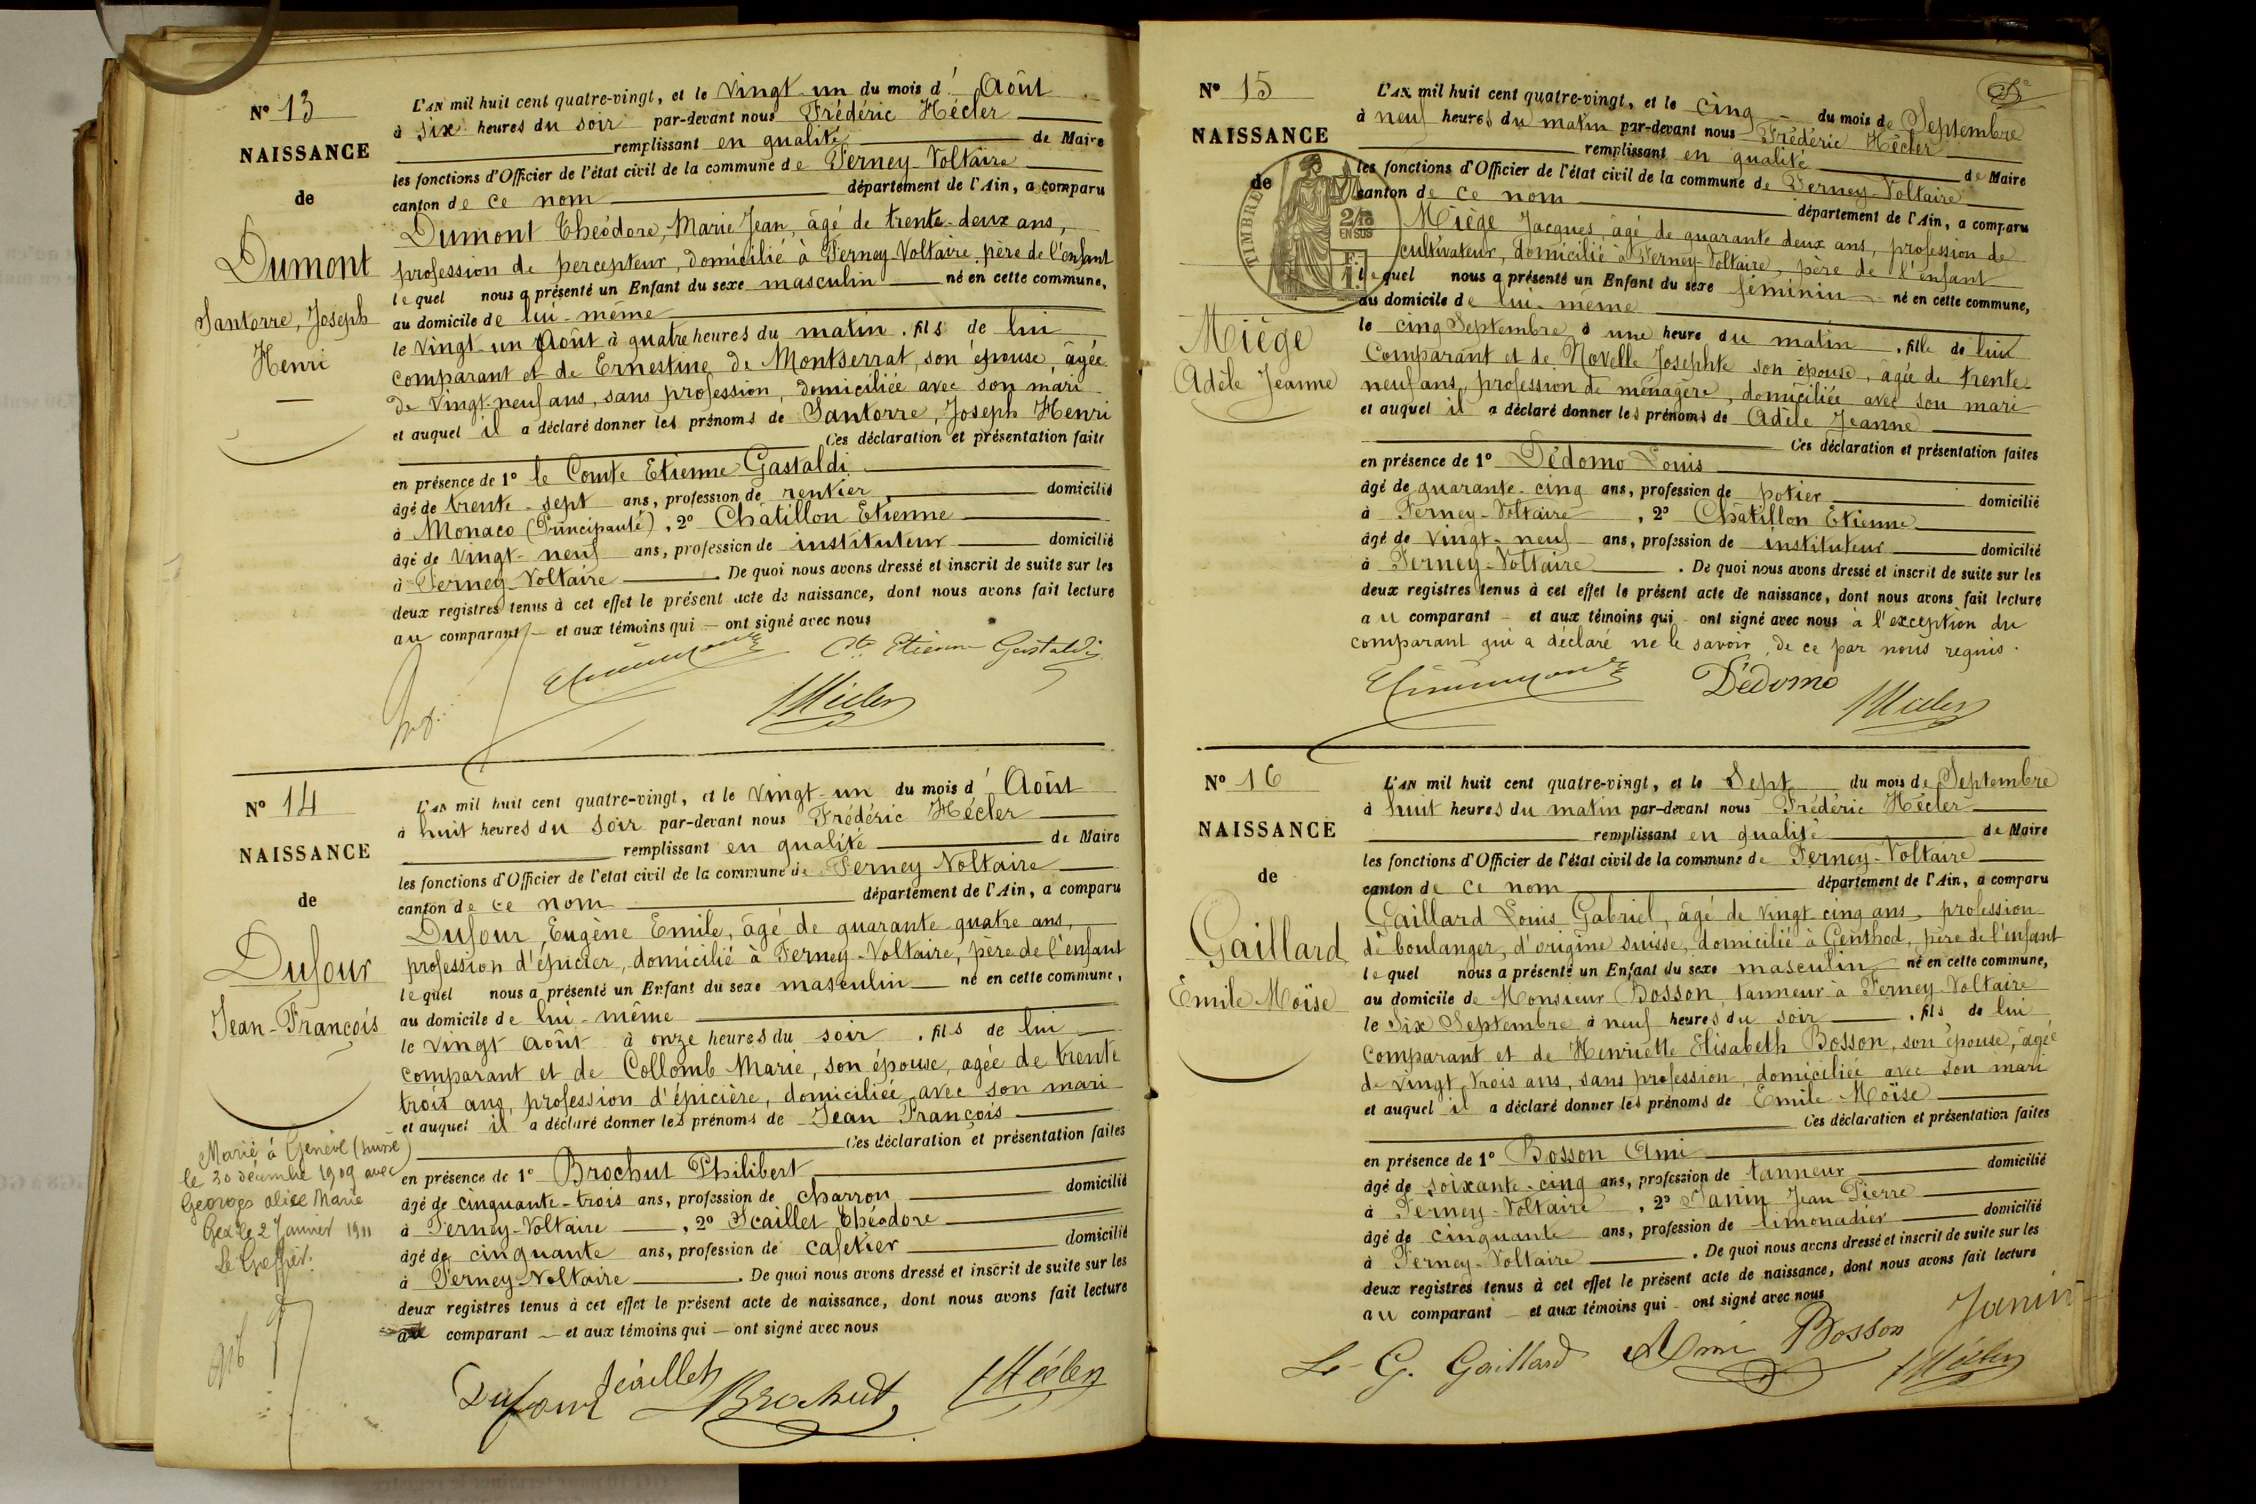 N° 13
NAISSANCE
de
Dumont
Santorre, Joseph
Henri
L'AN mil huit cent quatre-vingt, et le vingt-un du mois d'Août
à six heures du soir par-devant nous Frédéric Hécler
remplissant en qualité de Maire
les fonctions d'Officier de l'état civil de la commune de Ferney-Voltaire
canton de ce nom département de l'Ain, a comparu
Dumont Théodore, Marie Jean, âgé de trente-deux ans,
profession de percepteur, domicilié à Ferney-Voltaire, père de l'enfant
lequel nous a présenté un Enfant du sexe masculin né en cette commune,
au domicile de lui-même
le vingt-un Août à quatre heures du matin, fils de lui
comparant et de Ernestine de Montserrat, son épouse, âgée
de vingt-neuf ans, sans profession, domiciliée avec son mari
et auquel il a déclaré donner les prénoms de Santorre, Joseph Henri
Ces déclaration et présentation faite
en présence de 1° le Comte Etienne Gastaldi
âgé de trente-sept ans, profession de rentier domicilié
à Monaco (Principauté), 2° Châtillon Etienne
âgé de vingt-neuf ans, profession de instituteur domicilié
à Ferney-Voltaire. De quoi nous avons dressé et inscrit de suite sur les
deux registres tenus à cet effet le présent acte de naissance, dont nous avons fait lecture
au comparant et aux témoins qui ont signé avec nous
Cte Etienne Gastaldi
Hécler
N° 14
NAISSANCE
de
Dufour
Jean-François
Marié à Genève (suisse)
le 30 décembre 1909 avec
Georges alice Marie
Gex le 2 Janvier 1911
Le Greffier:
L'AN mil huit cent quatre-vingt, et le vingt-un du mois d'Août
à huit heures du soir par-devant nous Frédéric Hécler
remplissant en qualité de Maire
les fonctions d'Officier de l'état civil de la commune de Ferney Voltaire
canton de ce nom département de l'Ain, a comparu
Dufour, Eugène Emile, âgé de quarante-quatre ans,
profession d'épicier, domicilié à Ferney-Voltaire, père de l'enfant
lequel nous a présenté un Enfant du sexe masculin né en cette commune,
au domicile de lui-même
le vingt août à onze heures du soir, fils de lui
comparant et de Collomb Marie, son épouse, agée de trente
trois ans, profession d'épicière, domiciliée avec son mari
et auquel il a déclaré donner les prénoms de Jean François
Ces déclaration et présentation faites
en présence de 1° Brochut Philibert
âgé de cinquante-trois ans, profession de charron domicilié
à Ferney-Voltaire, 2° Scaillet Théodore
âgé de cinquante ans, profession de cafetier domicilié
à Ferney-Voltaire. De quoi nous avons dressé et inscrit de suite sur les
deux registres tenus à cet effet le présent acte de naissance, dont nous avons fait lecture
au comparant et aux témoins qui ont signé avec nous
Dufour Scaillet Brochut Hécler
N° 15
NAISSANCE
de
TIMBRE
2/10
EN SUS
Miège
Adèle Jeanne
L'AN mil huit cent quatre-vingt, et le cinq du mois de Septembre
à neuf heures du matin par-devant nous Frédéric Hécler
remplissant en qualité de Maire
les fonctions d'Officier de l'état civil de la commune de Ferney-Voltaire
canton de ce nom département de l'Ain, a comparu
Miège Jacques, âgé de quarante deux ans, profession de
cultivateur, domicilié à Ferney-Voltaire, père de l'enfant
lequel nous a présenté un Enfant du sexe féminin né en cette commune,
au domicile de lui-même
le cinq Septembre à une heure du matin, fille de lui
comparant et de Novelle Josephte son épouse, âgée de trente-
neuf ans, profession de ménagère, domiciliée avec son mari
et auquel il a déclaré donner les prénoms de Adèle Jeanne
Ces déclaration et présentation faites
en présence de 1° Dédomo Louis
âgé de quarante-cinq ans, profession de potier domicilié
à Ferney-Voltaire, 2° Châtillon Etienne
âgé de vingt-neuf ans, profession de instituteur domicilié
à Ferney-Voltaire. De quoi nous avons dressé et inscrit de suite sur les
deux registres tenus à cet effet le présent acte de naissance, dont nous avons fait lecture
au comparant et aux témoins qui ont signé avec nous à l'exception du
comparant qui a déclaré ne le savoir, de ce par nous requis.
Dédomo
Hécler
N° 16
NAISSANCE
de
Gaillard
Emile Moïse
L'AN mil huit cent quatre-vingt, et le Sept du mois de Septembre
à huit heures du matin par-devant nous Frédéric Hécler
remplissant en qualité de Maire
les fonctions d'Officier de l'état civil de la commune de Ferney-Voltaire
canton de ce nom département de l'Ain, a comparu
Gaillard Louis Gabriel, âgé de vingt-cinq ans, profession
de boulanger, d'origine suisse, domicilié à Genthod, père de l'enfant
lequel nous a présenté un Enfant du sexe masculin né en cette commune,
au domicile de Monsieur Bosson, tanneur à Ferney-Voltaire
le Six Septembre à neuf heures du soir, fils de lui
comparant et de Henriette Elisabeth Bosson, son épouse, âgée
de vingt-trois ans, sans profession, domiciliée avec son mari
et auquel il a déclaré donner les prénoms de Emile Moïse
Ces déclaration et présentation faites
en présence de 1° Bosson Ami
âgé de soixante-cinq ans, profession de tanneur domicilié
à Ferney-Voltaire, 2° Janin Jean Pierre
âgé de cinquante ans, profession de limonadier domicilié
à Ferney-Voltaire. De quoi nous avons dressé et inscrit de suite sur les
deux registres tenus à cet effet le présent acte de naissance, dont nous avons fait lecture
au comparant et aux témoins qui ont signé avec nous
L. G. Gaillard Ami Bosson Janin
Hécler